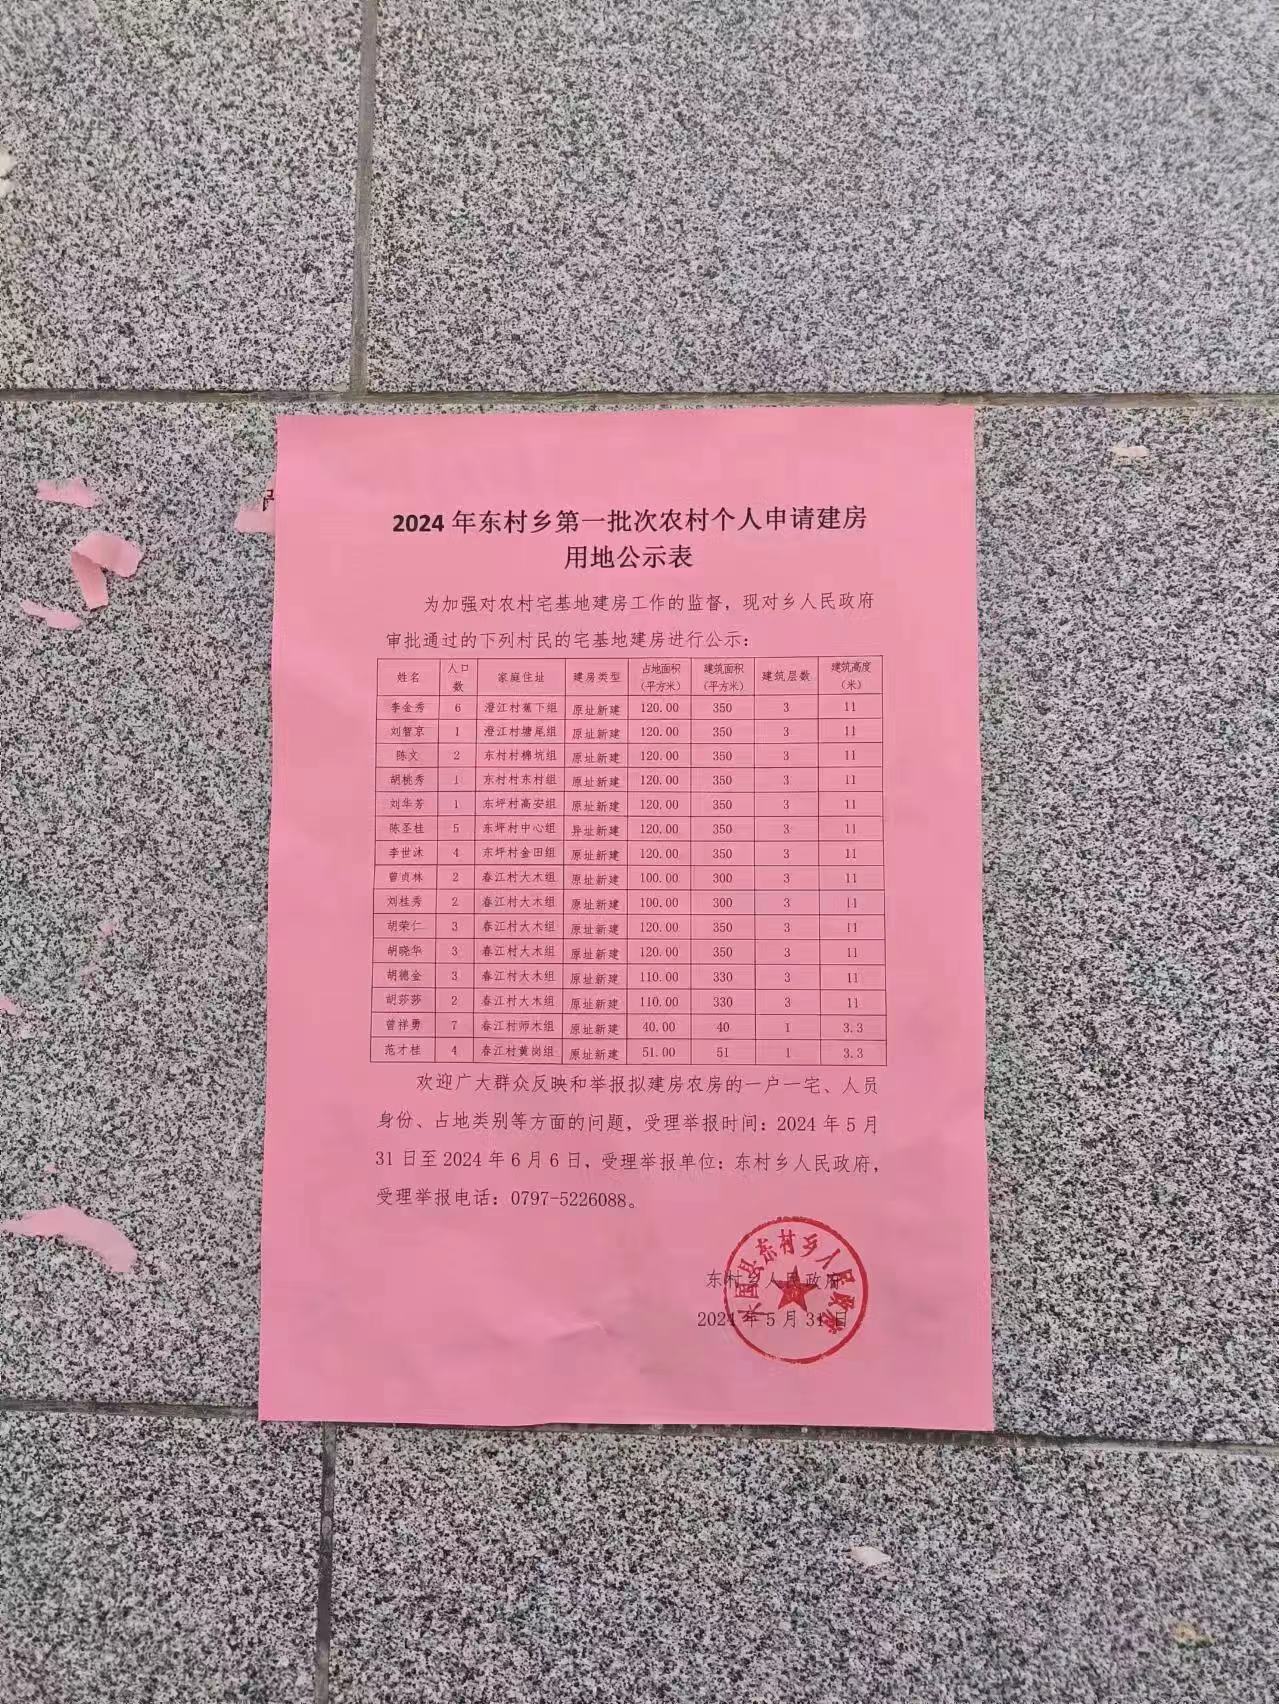 2024 年东村乡第一批次农村个人申请建房
用地公示表
为加强对农村宅基地建房工作的监督，现对乡人民政府
审批通过的下列村民的宅基地建房进行公示：
姓名 人口数 家庭住址 建房类型 占地面积（平方米） 建筑面积（平方米） 建筑层数 建筑高度（米）
李金秀 6 澄江村蕉下组 原址新建 120.00 350 3 11
刘智京 1 澄江村塘尾组 原址新建 120.00 350 3 11
陈文 2 东村村棉坑组 原址新建 120.00 350 3 11
胡桃秀 1 东村村东村组 原址新建 120.00 350 3 11
刘华芳 1 东坪村高安组 原址新建 120.00 350 3 11
陈圣桂 5 东坪村中心组 异址新建 120.00 350 3 11
李世沐 4 东坪村金田组 原址新建 120.00 350 3 11
曾贞林 2 春江村大木组 原址新建 100.00 300 3 11
刘桂秀 2 春江村大木组 原址新建 100.00 300 3 11
胡荣仁 3 春江村大木组 原址新建 120.00 350 3 11
胡晓华 3 春江村大木组 原址新建 120.00 350 3 11
胡德金 3 春江村大木组 原址新建 110.00 330 3 11
胡莎莎 2 春江村大木组 原址新建 110.00 330 3 11
曾祥勇 7 春江村师木组 原址新建 40.00 40 1 3.3
范才桂 4 春江村黄岗组 原址新建 51.00 51 1 3.3
欢迎广大群众反映和举报拟建房农房的一户一宅、人员
身份、占地类别等方面的问题，受理举报时间：2024 年 5 月
31 日至 2024 年 6 月 6 日，受理举报单位：东村乡人民政府，
受理举报电话：0797-5226088。
东村乡人民政府
2024 年 5 月 31 日
兴国县东村乡人民政府